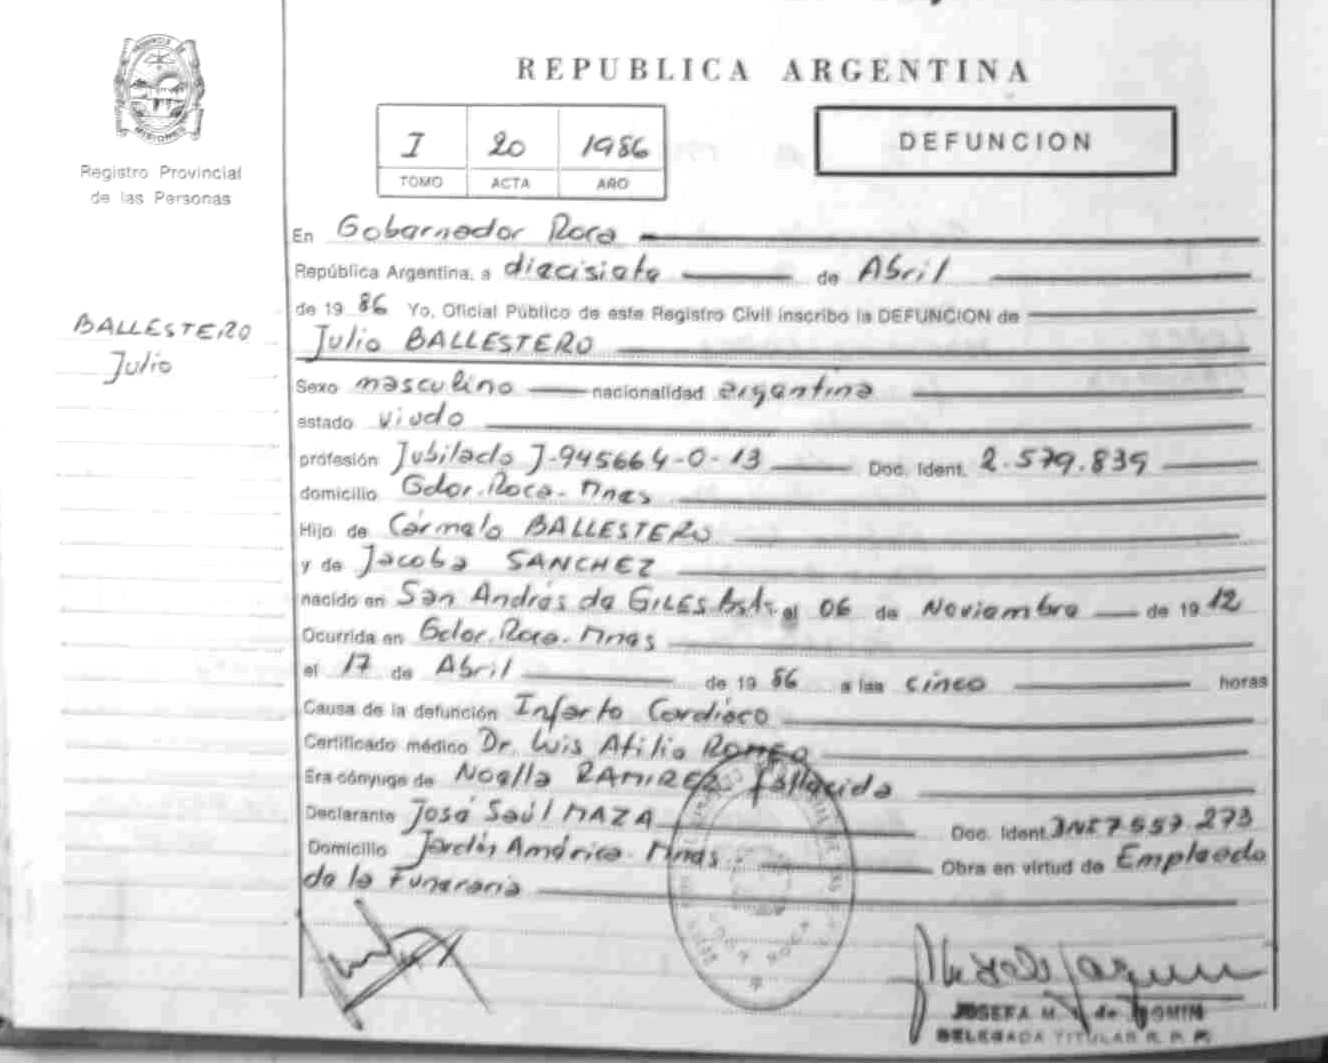 REPUBLICA ARGENTINA
PROVINCIA DE
MISIONES
Registro Provincial
de las Personas
I 20 1986
TOMO ACTA AÑO
DEFUNCION
En Gobernador Roca
República Argentina, a diecisiete de Abril
de 19 86 Yo, Oficial Público de este Registro Civil inscribo la DEFUNCION de
BALLESTERO
Julio
Julio BALLESTERO
Sexo masculino nacionalidad argentina
estado viudo
profesión Jubilado J-945664-0-13 Doc. Ident. 2.579.839
domicilio Gdor. Roca - Mnes
Hijo de Cármelo BALLESTERO
y de Jacoba SANCHEZ
nacido en San Andrés de GILES el 06 de Noviembre de 19 12
Ocurrida en Gdor. Roca - Mnes
el 17 de Abril de 19 86 a las cinco horas
Causa de la defunción Infarto Cardíaco
Certificado médico Dr. Luis Atilio Romeo
Era cónyuge de Noelia RAMIREZ fallecida
Declarante José Saúl MAZA Doc. Ident. DNI 7.557.273
Domicilio Jardín América - Mnes Obra en virtud de Empleado
de la Funeraria
ROCA
JOSEFA M. de
DELEGADA TITULAR R. P. P.